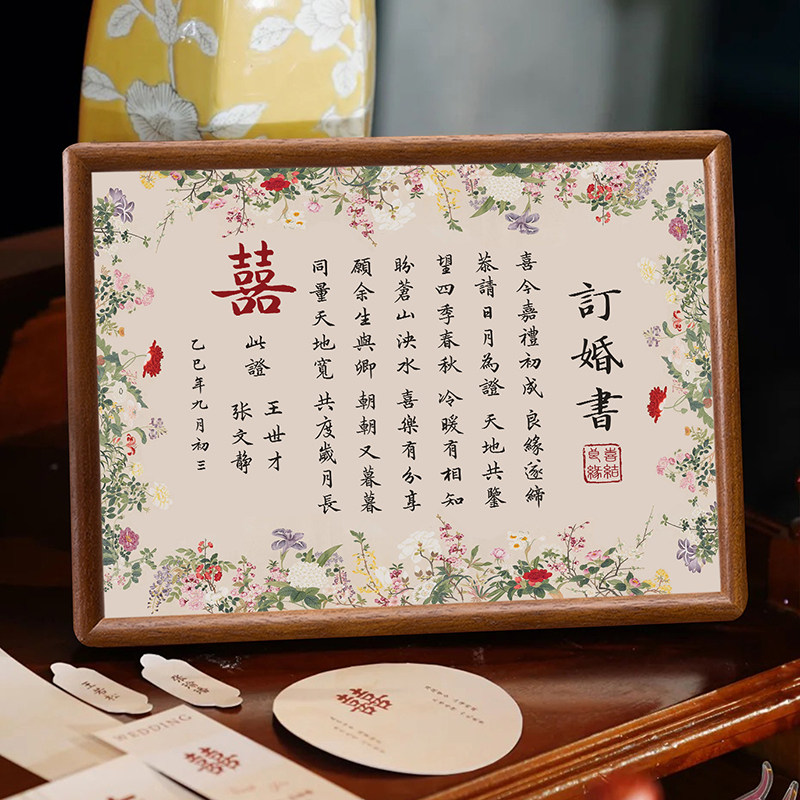 訂婚書
喜結良緣
喜今嘉禮初成 良緣遂締
恭請日月為證 天地共鑒
望四季春秋 冷暖有相知
盼蒼山泱水 喜樂有分享
願余生與卿 朝朝又暮暮
同量天地寬 共度歲月長
囍
此證
王世才
张文静
乙巳年九月初三
囍
WEDDING
囍